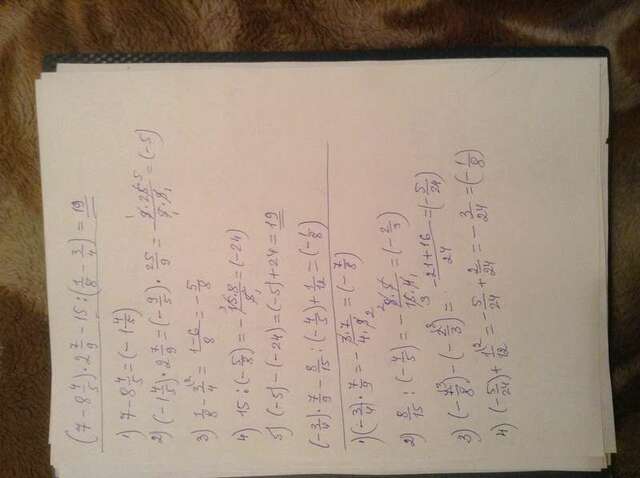 (7 - 8 4/5) · 2 7/9 - 15 : (1/8 - 3/4) = 19
1) 7 - 8 4/5 = (- 1 4/5)
2) (- 1 4/5) · 2 7/9 = (- 9/5) · 25/9 = 9·25/5·9 = (-5)
3) 1/8 - 3/4 = 1-6/8 = - 5/8
4) 15 : (- 5/8) = - 15·8/5 = (-24)
5) (-5) - (-24) = (-5) + 24 = 19
(- 3/4) · 7/9 - 8/15 : (- 4/5) + 1/12 = (- 1/8)
1) (- 3/4) · 7/9 = - 3·7/4·9 = (- 7/8)
2) 8/15 : (- 4/5) = - 8·5/15·4 = (- 2/3)
3) (- 7/8) - (- 2/3) = -21+16/24 = (- 5/24)
4) (- 5/24) + 1/12 = - 5/24 + 2/24 = - 3/24 = (- 1/8)